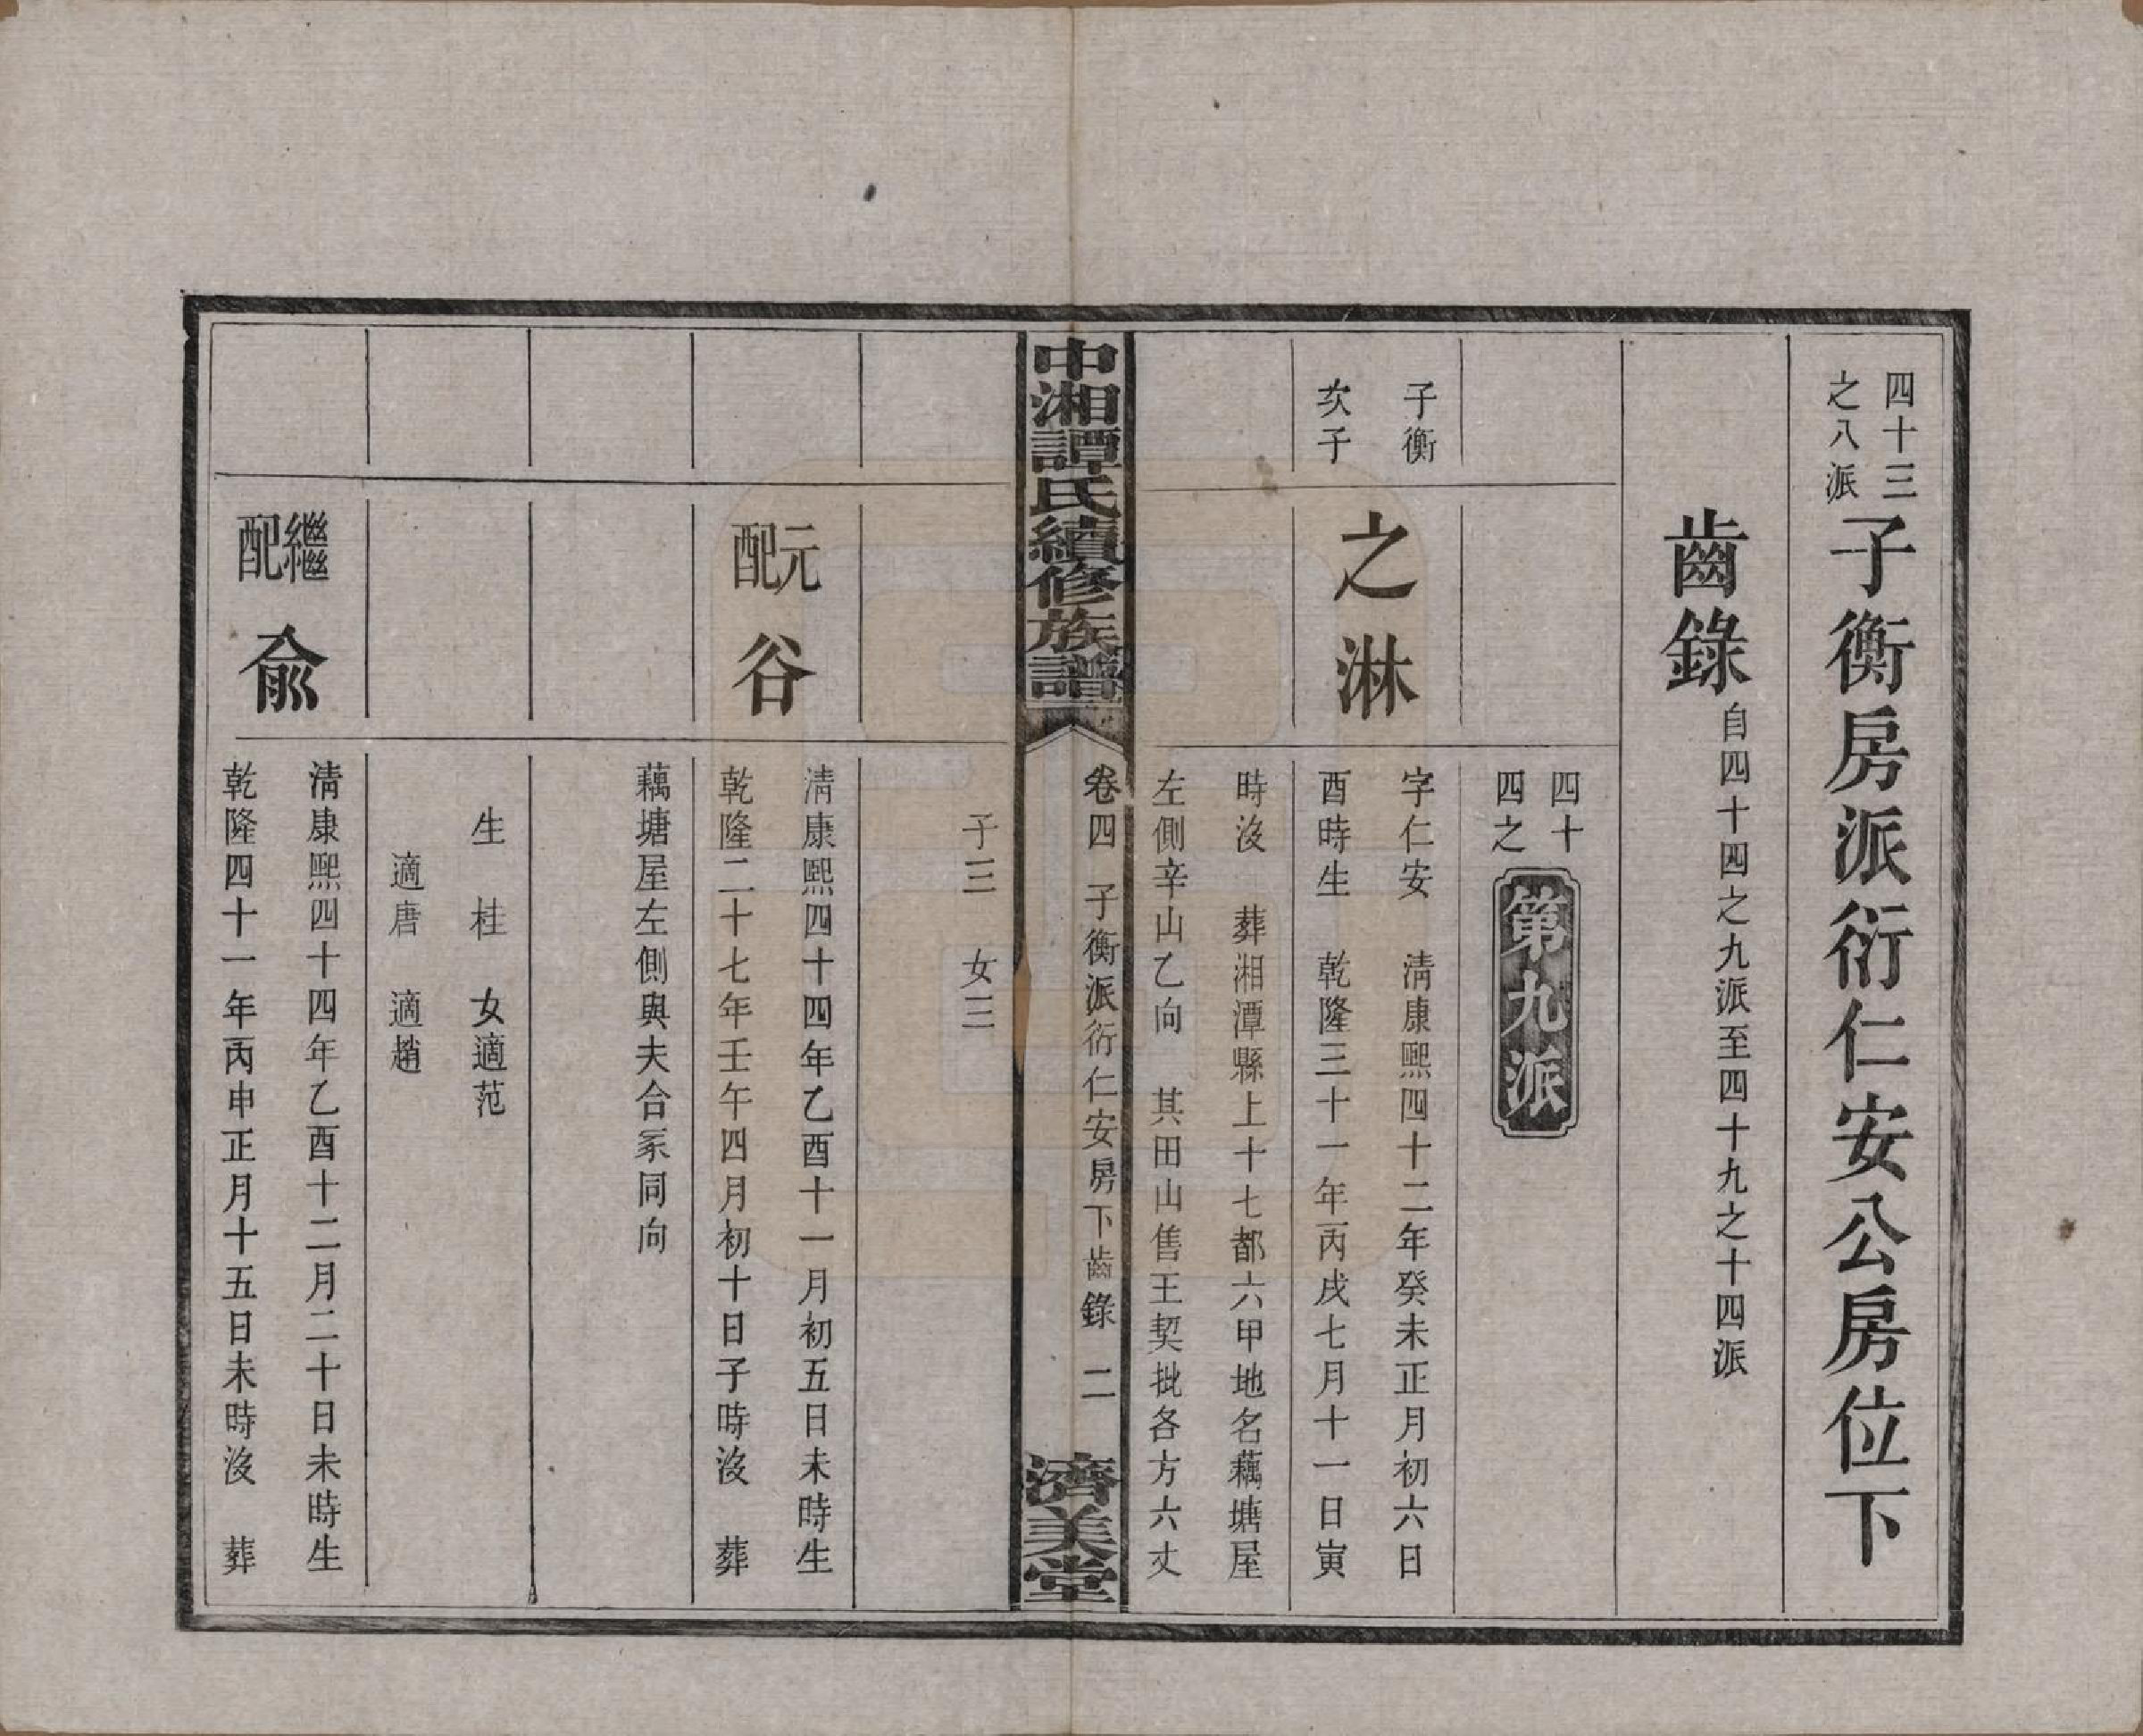 四十三
之八派
子衡房派衍仁安公房位下
齒錄
自四十四之九派至四十九之十四派
四十
四之
第九派
子衡
次子
之淋
字仁安　清康熙四十二年癸未正月初六日
酉時生　乾隆三十一年丙戌七月十一日寅
時沒　葬湘潭縣上十七都六甲地名藕塘屋
左側辛山乙向　其田山售王契批各方六丈
中湘譚氏續修族譜
卷四　子衡派衍仁安房下齒錄　二
濟美堂
子三　女三
元配
谷
清康熙四十四年乙酉十一月初五日未時生
乾隆二十七年壬午四月初十日子時沒　葬
藕塘屋左側與夫合冢同向
生　桂　女適范
適唐　適趙
繼配
俞
清康熙四十四年乙酉十二月二十日未時生
乾隆四十一年丙申正月十五日未時沒　葬